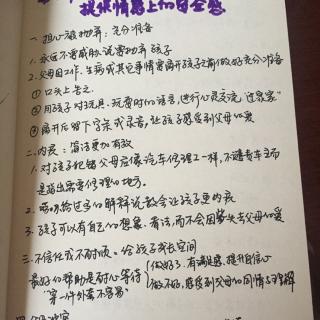 提供情感上的安全感
一、担心被抛弃：充分准备
1. 永远不要威胁说要抛弃孩子
2. 父母因工作、生病或其它事情需离开孩子之前做好充分准备
① 口头上告之
② 用孩子对玩具、玩耍时的语言，进行心灵交流，"过家家"
③ 离开后留下字条或录音，让孩子感受到父母的爱
二、内疚：简洁更加有效
1. 对孩子犯错父母应像汽车修理工一样，不谴责车主而
是指出需要修理的地方。
2. 给过多的解释说教会让孩子更内疚
3. 孩子可以有自己的想象、看法，而不会因此失去父母的爱
三、不信任或不耐烦：给孩子成长空间
最好的帮助是耐心等待
"穿一件外套不容易"
做好了：有满足感，提升自信心
做不好，感受到父母的同情与理解